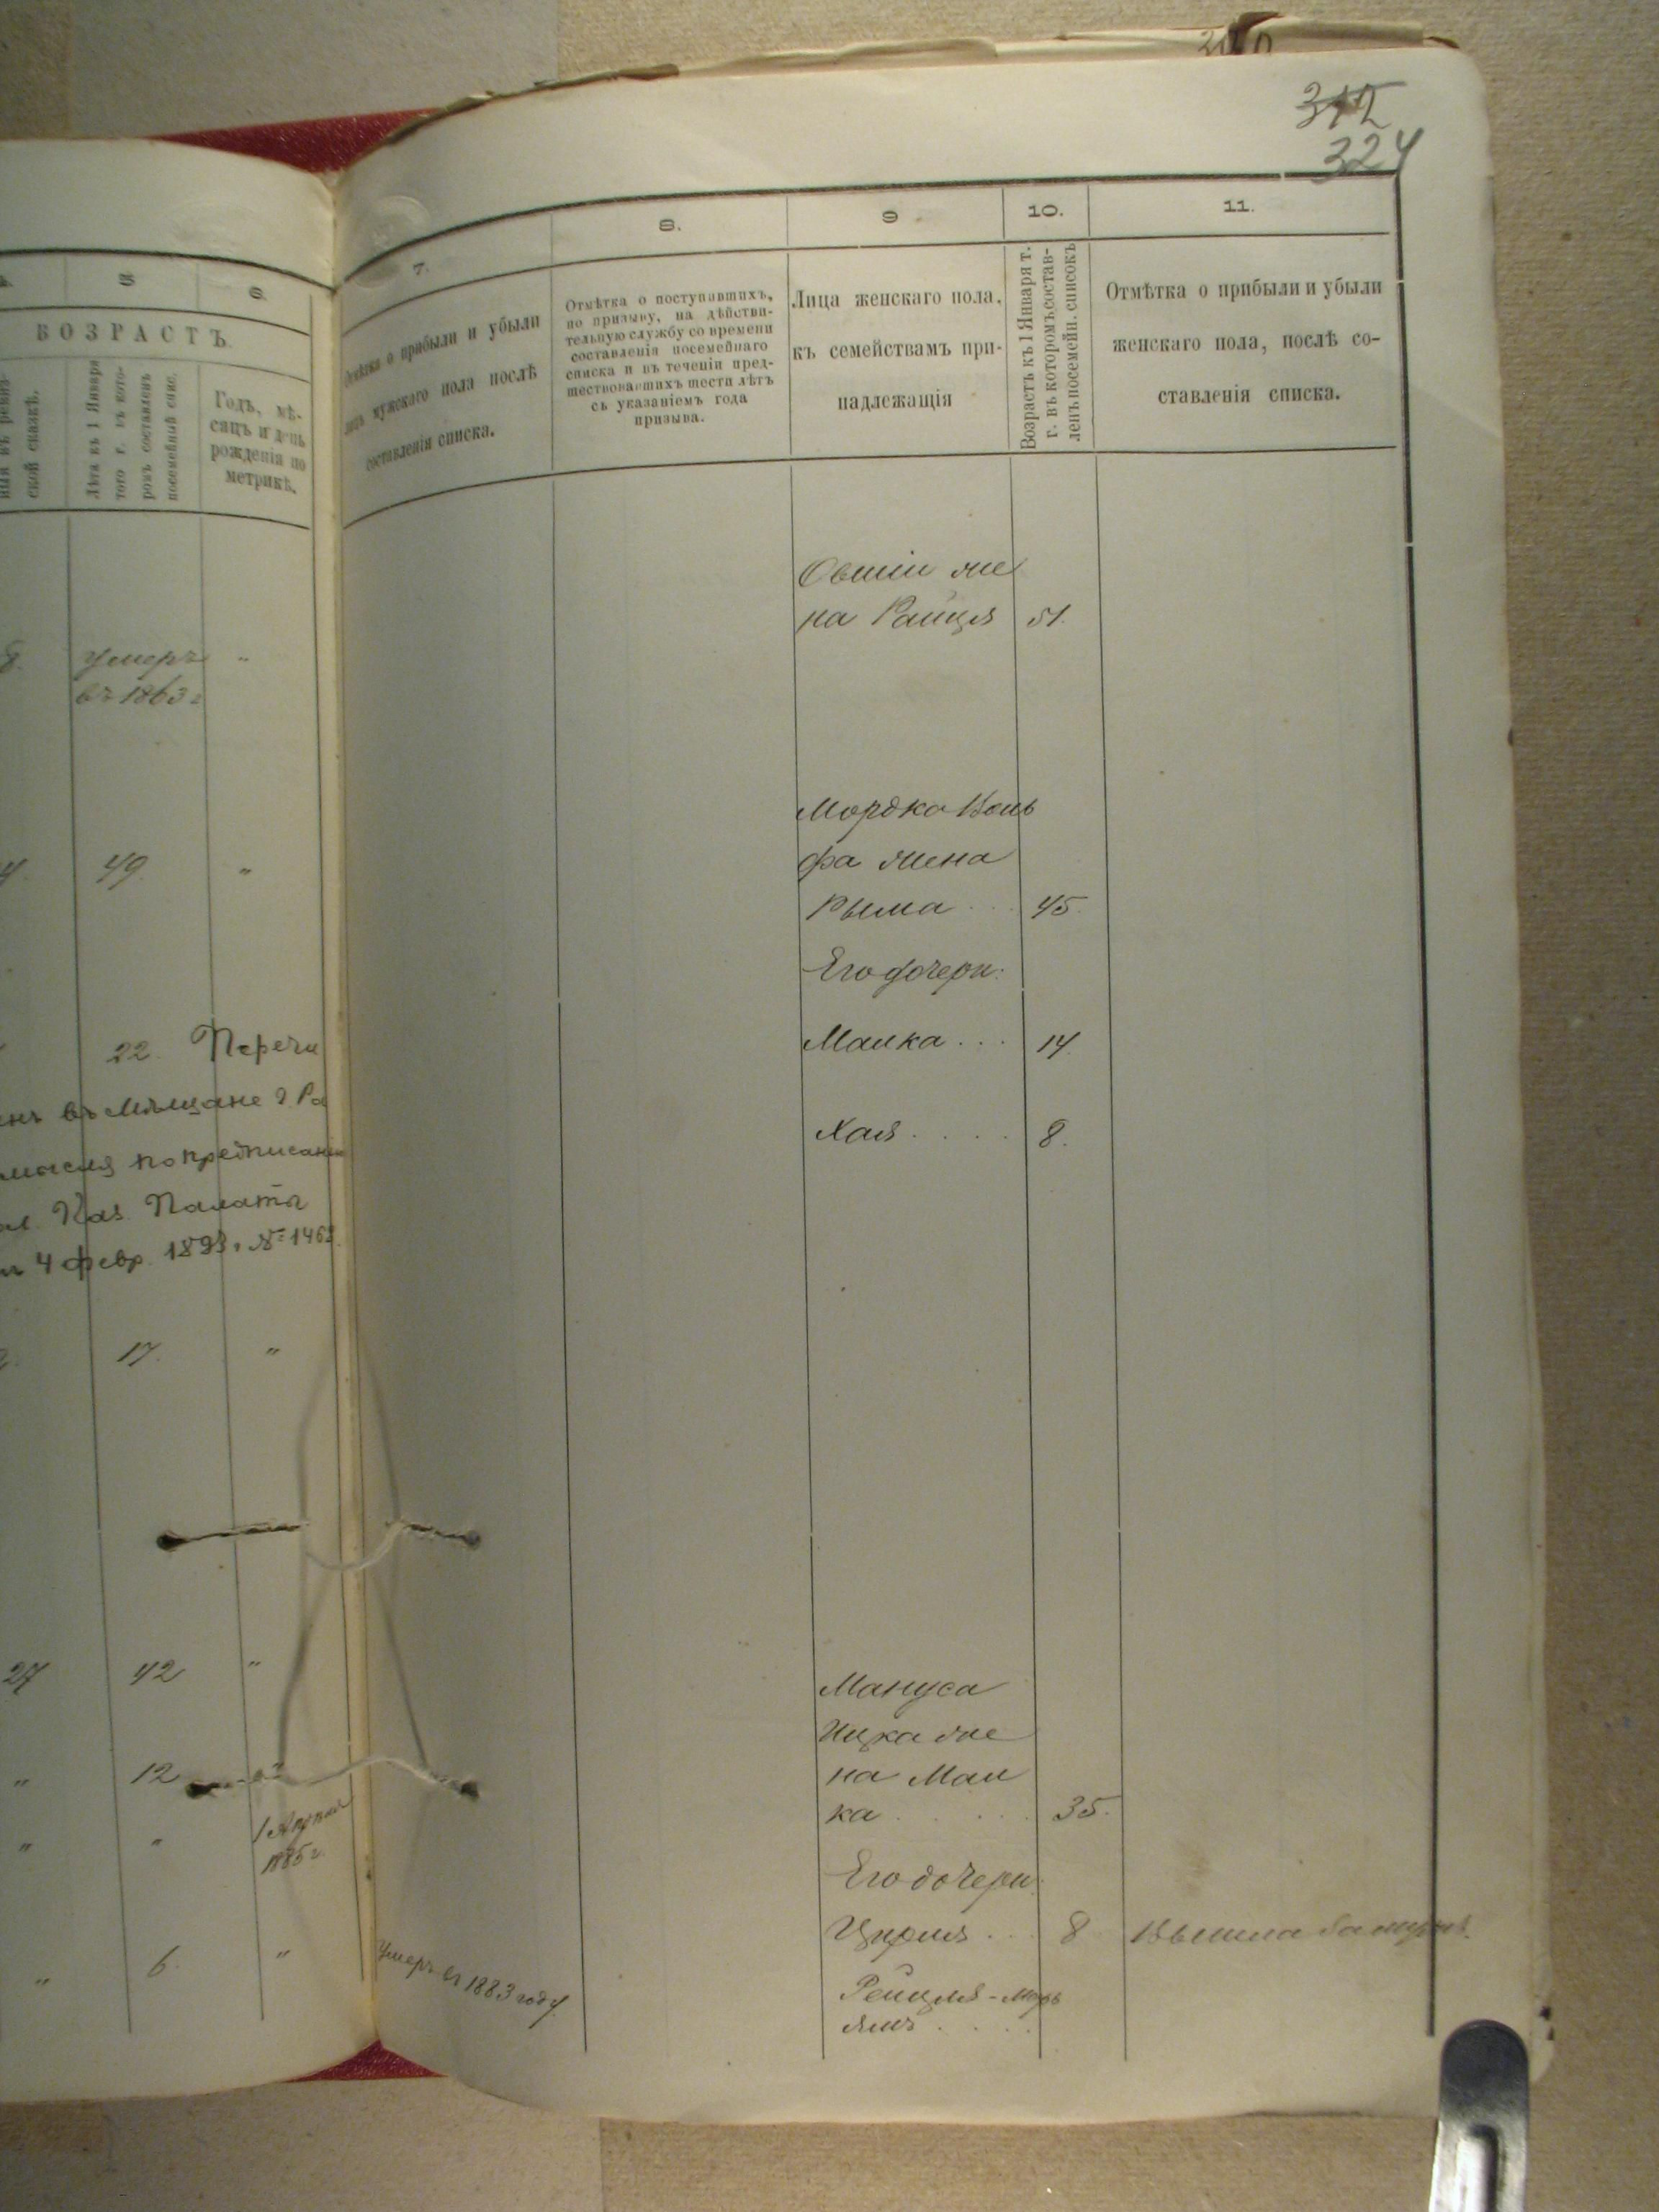 312
324
5
6
ВОЗРАСТЪ.
ской сказкѣ.
Лѣта къ 1 Января
того г. въ кото-
ромъ составленъ
посемейный спис.
Годъ, мѣ-
сяцъ и день
рожденія по
метрикѣ.
умеръ "
въ 1863 г
49 "
22. Перечи
въ Мѣщане г. Ра
по предписанію
Каз. Палаты
4 февр. 1893 г. №
17. "
27 42 "
" 12
" " 1 Апрѣля
1885 г.
" 6. "
7.
8.
9
10.
11.
Отмѣтка о прибыли и убыли
лицъ мужскаго пола послѣ
составленія списка.
Отмѣтка о поступавшихъ,
по призыву, на дѣйстви-
тельную службу со времени
составленія посемейнаго
списка и въ теченіи пред-
шествовавшихъ шести лѣтъ
съ указаніемъ года
призыва.
Лица женскаго пола,
къ семействамъ при-
надлежащія
Возрастъ къ 1 Января т.
г. въ которомъ состав-
ленъ посемейн. списокъ
Отмѣтка о прибыли и убыли
женскаго пола, послѣ со-
ставленія списка.
Овшіи же
на Раиця 51.
Мордка Воль
фа жена
Рыма . . . 45.
Его дочери:
Малка . . . 14.
Хая . . . . 8.
Мануса
Ицка же
на Мал
ка . . . . 35.
Его дочери:
Цирля . . . 8 Вышла замужъ.
Умеръ въ 1883 году
Рейцля-Марь
ямъ . . . .